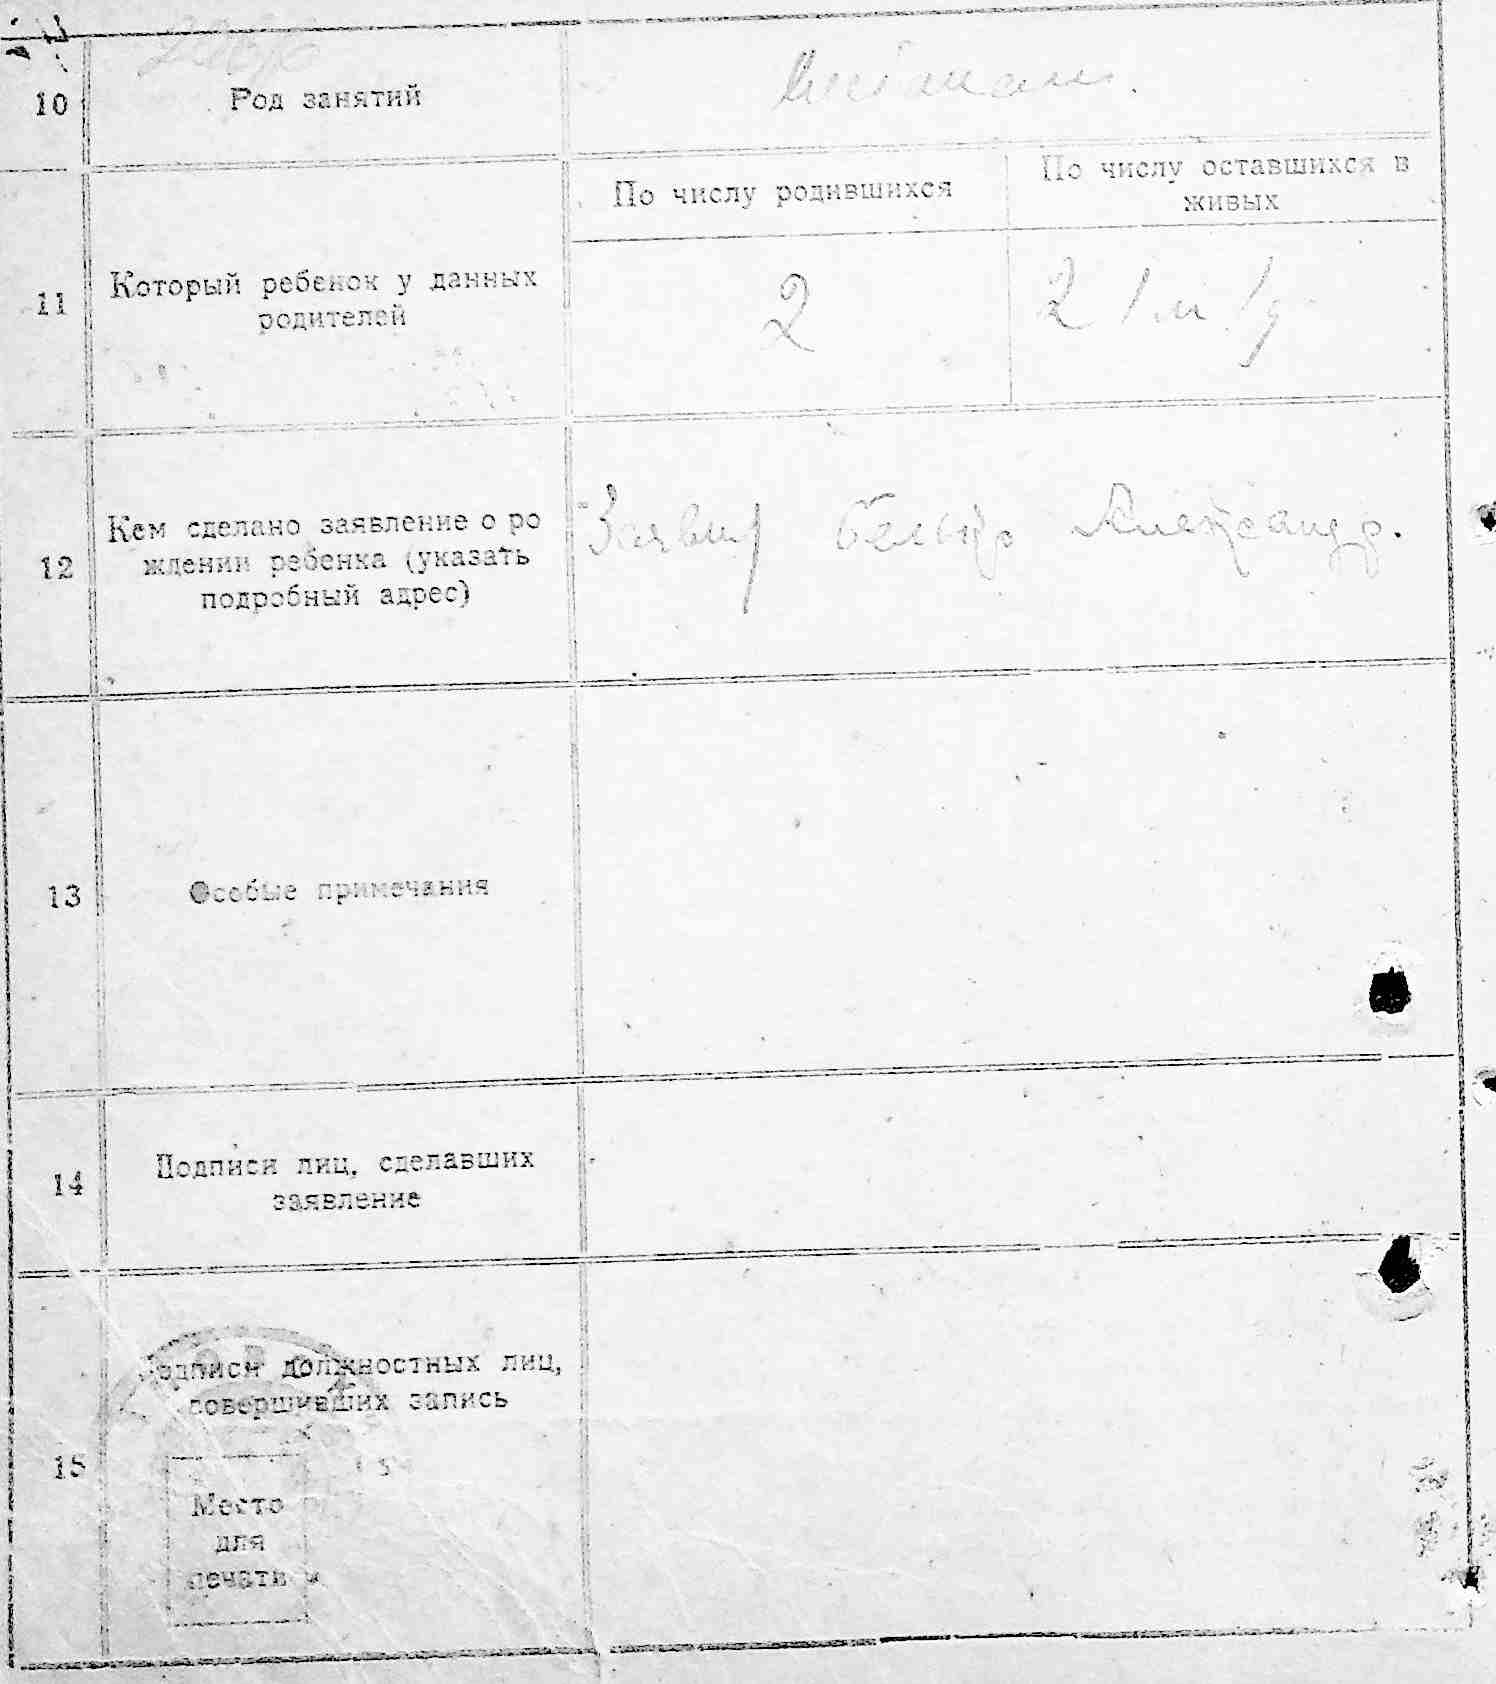 10
Род занятий
По числу родившихся
По числу оставшихся в
живых
11
Который ребенок у данных
родителей
2
2 1 м 1 д
12
Кем сделано заявление о ро
ждении ребенка (указать
подробный адрес)
Александр.
13
Особые примечания
14
Подписи лиц, сделавших
заявление
15
Подписи должностных лиц,
совершивших запись
Место
для
печати